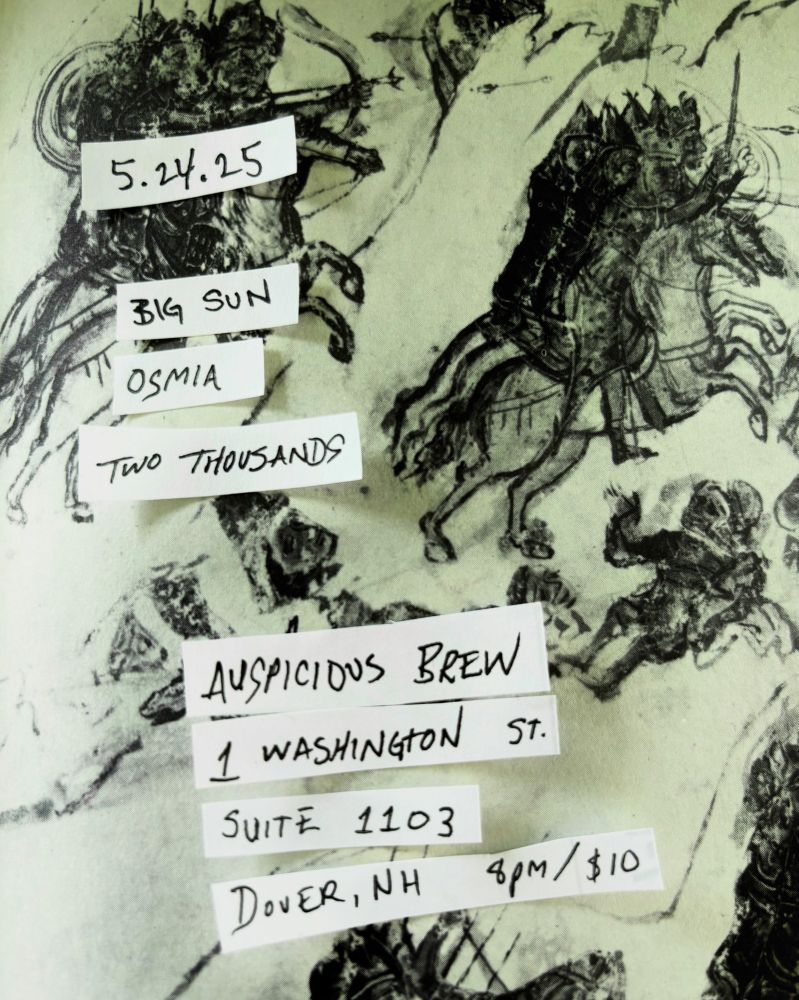 5.24.25
BIG SUN
OSMIA
TWO THOUSANDS
AUSPICIOUS BREW
1 WASHINGTON ST.
SUITE 1103
DOVER, NH 8PM/$10